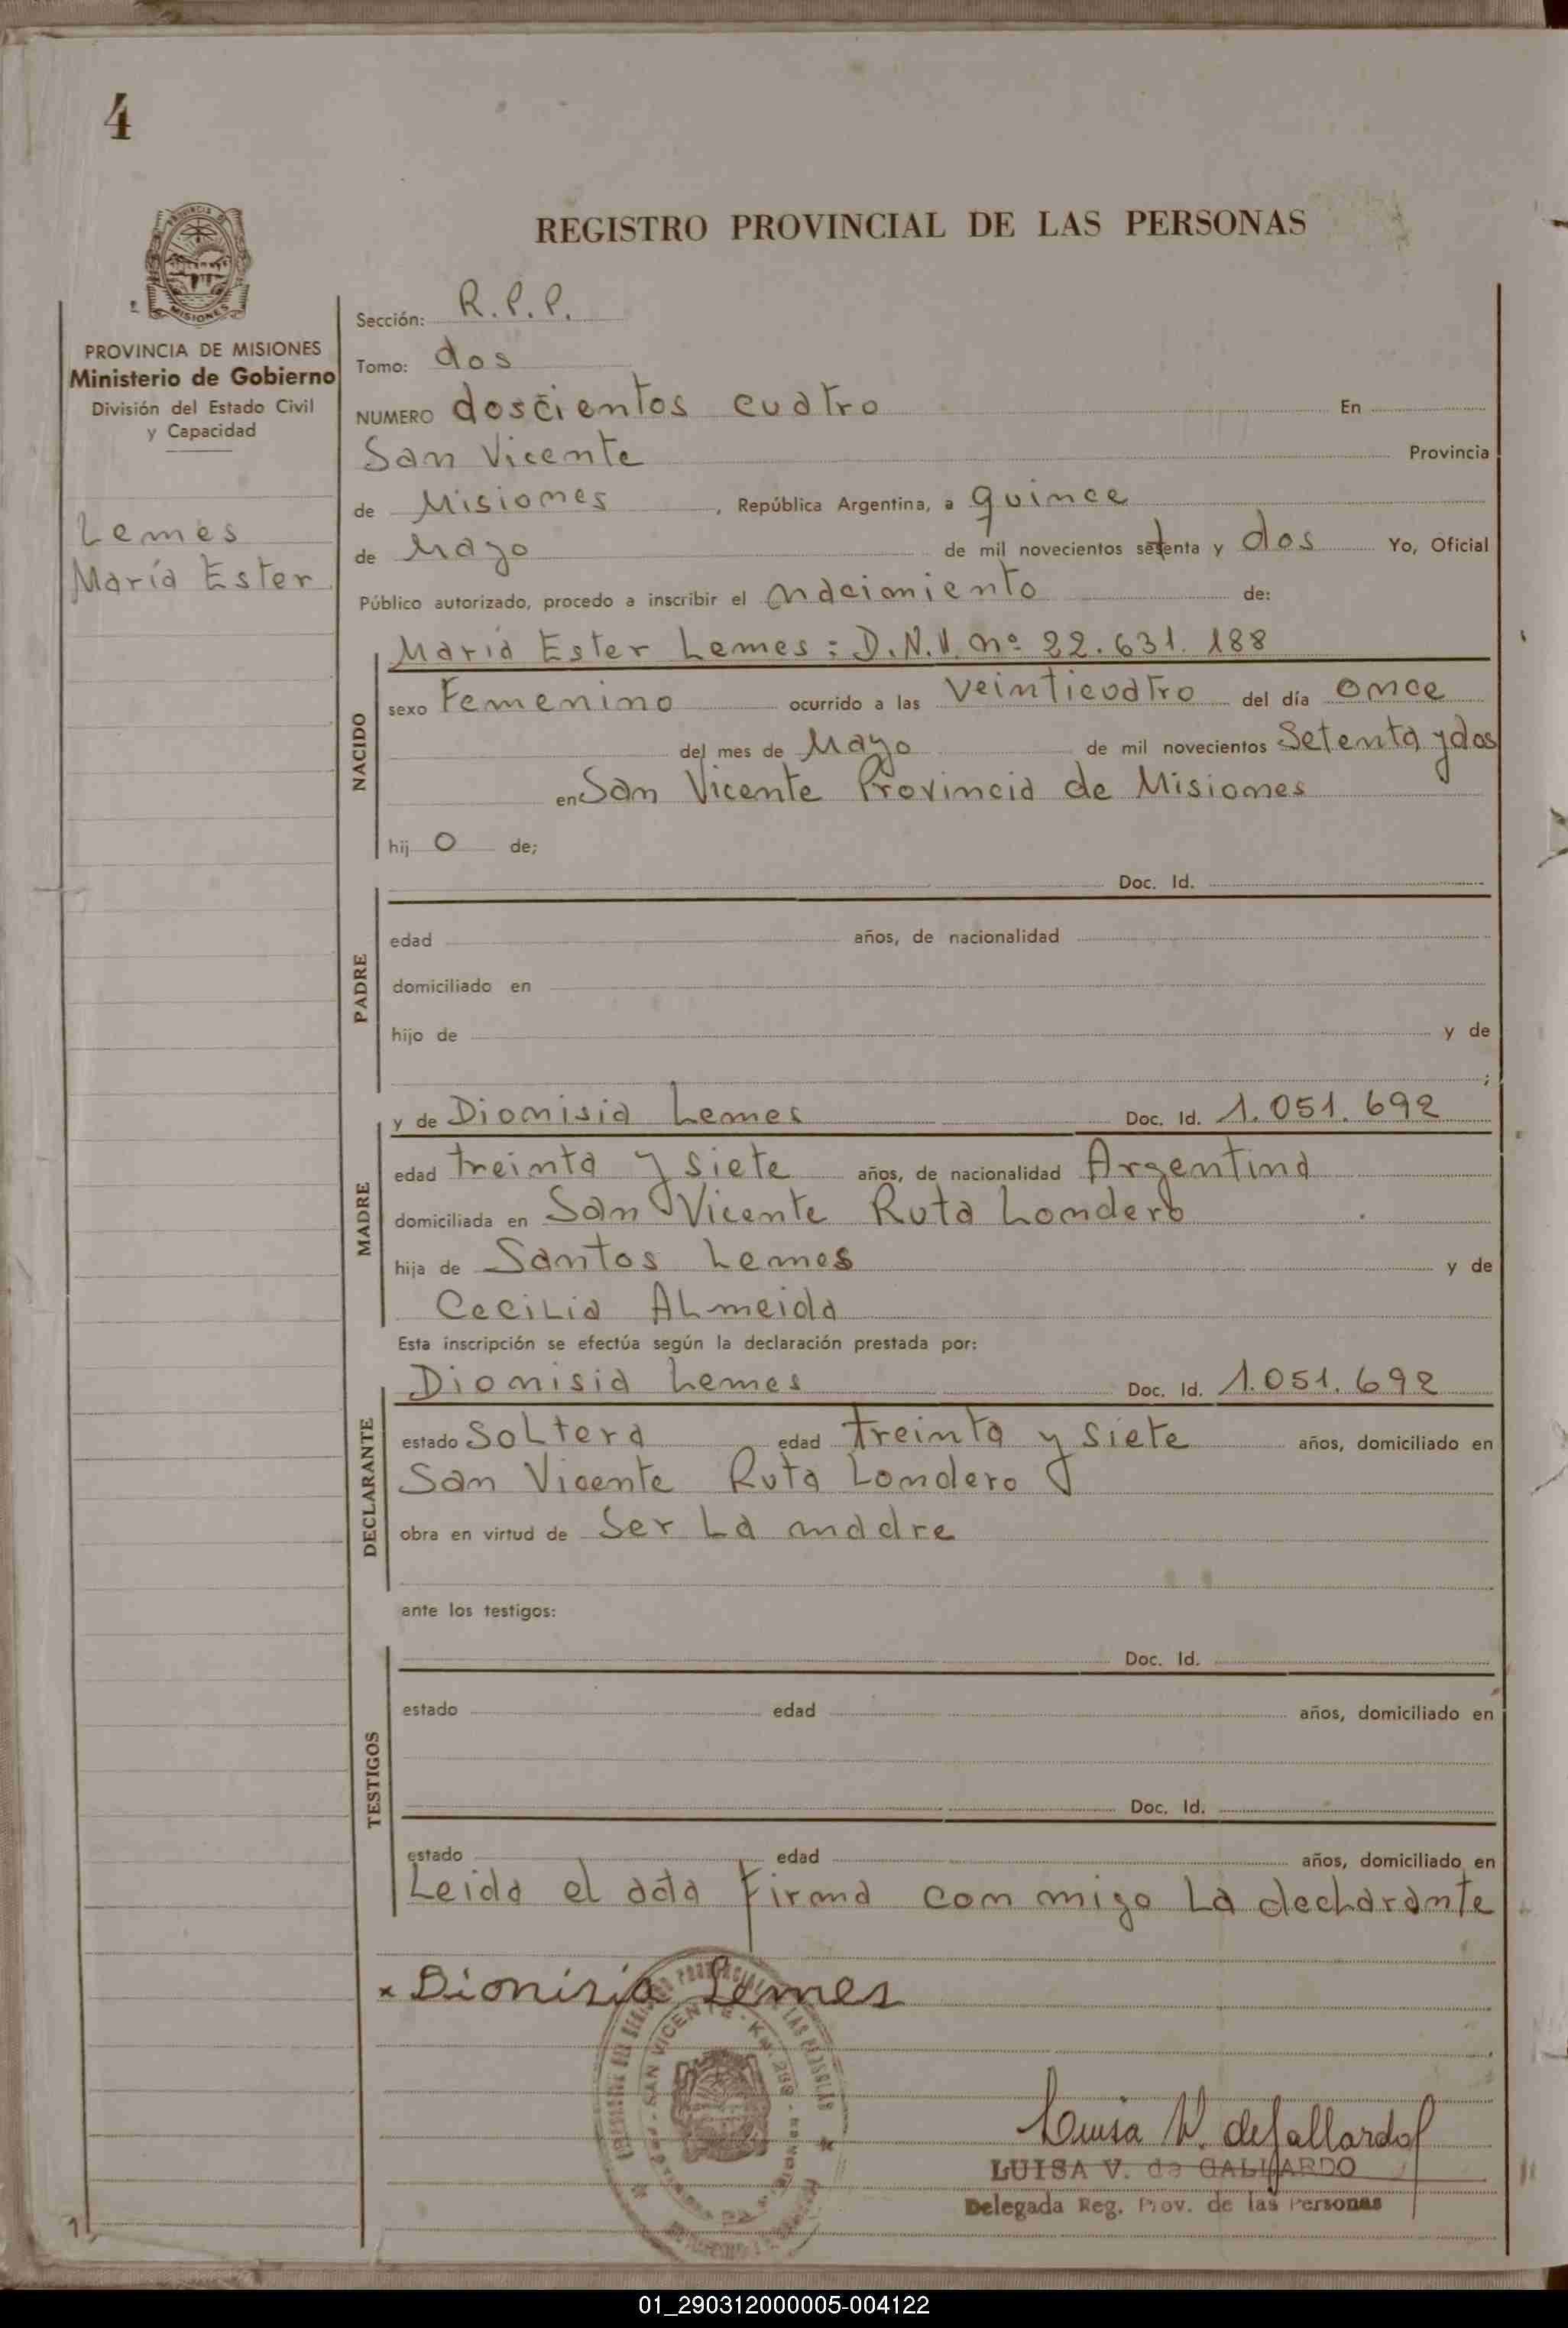 4
REGISTRO PROVINCIAL DE LAS PERSONAS
MISIONES
PROVINCIA DE MISIONES
Ministerio de Gobierno
División del Estado Civil
y Capacidad
Lemes
María Ester
Sección: R.P.P.
Tomo: dos
NUMERO doscientos cuatro En
San Vicente Provincia
de Misiones, República Argentina, a quince
de Mayo de mil novecientos setenta y dos Yo, Oficial
Público autorizado, procedo a inscribir el nacimiento de:
NACIDO
María Ester Lemes: D.N.I. nº 22.631.188
sexo Femenino ocurrido a las veinticuatro del día once
del mes de Mayo de mil novecientos Setenta y dos
en San Vicente Provincia de Misiones
hij o de;
PADRE
Doc. Id.
edad años, de nacionalidad
domiciliado en
hijo de y de
;
MADRE
y de Dionisia Lemes Doc. Id. 1.051.692
edad treinta y siete años, de nacionalidad Argentina
domiciliada en San Vicente Ruta Londero
hija de Santos Lemes y de
Cecilia Almeida
Esta inscripción se efectúa según la declaración prestada por:
DECLARANTE
Dionisia Lemes Doc. Id. 1.051.692
estado Soltera edad treinta y siete años, domiciliado en
San Vicente Ruta Londero
obra en virtud de Ser La madre
ante los testigos:
TESTIGOS
Doc. Id.
estado edad años, domiciliado en
Doc. Id.
estado edad años, domiciliado en
Leida el acta firma con migo La declarante
x Dionisia Lemes
SAN VICENTE
Luisa V. de Gallardo
LUISA V. de GALLARDO
Delegada Reg. Prov. de las Personas
01_290312000005-004122